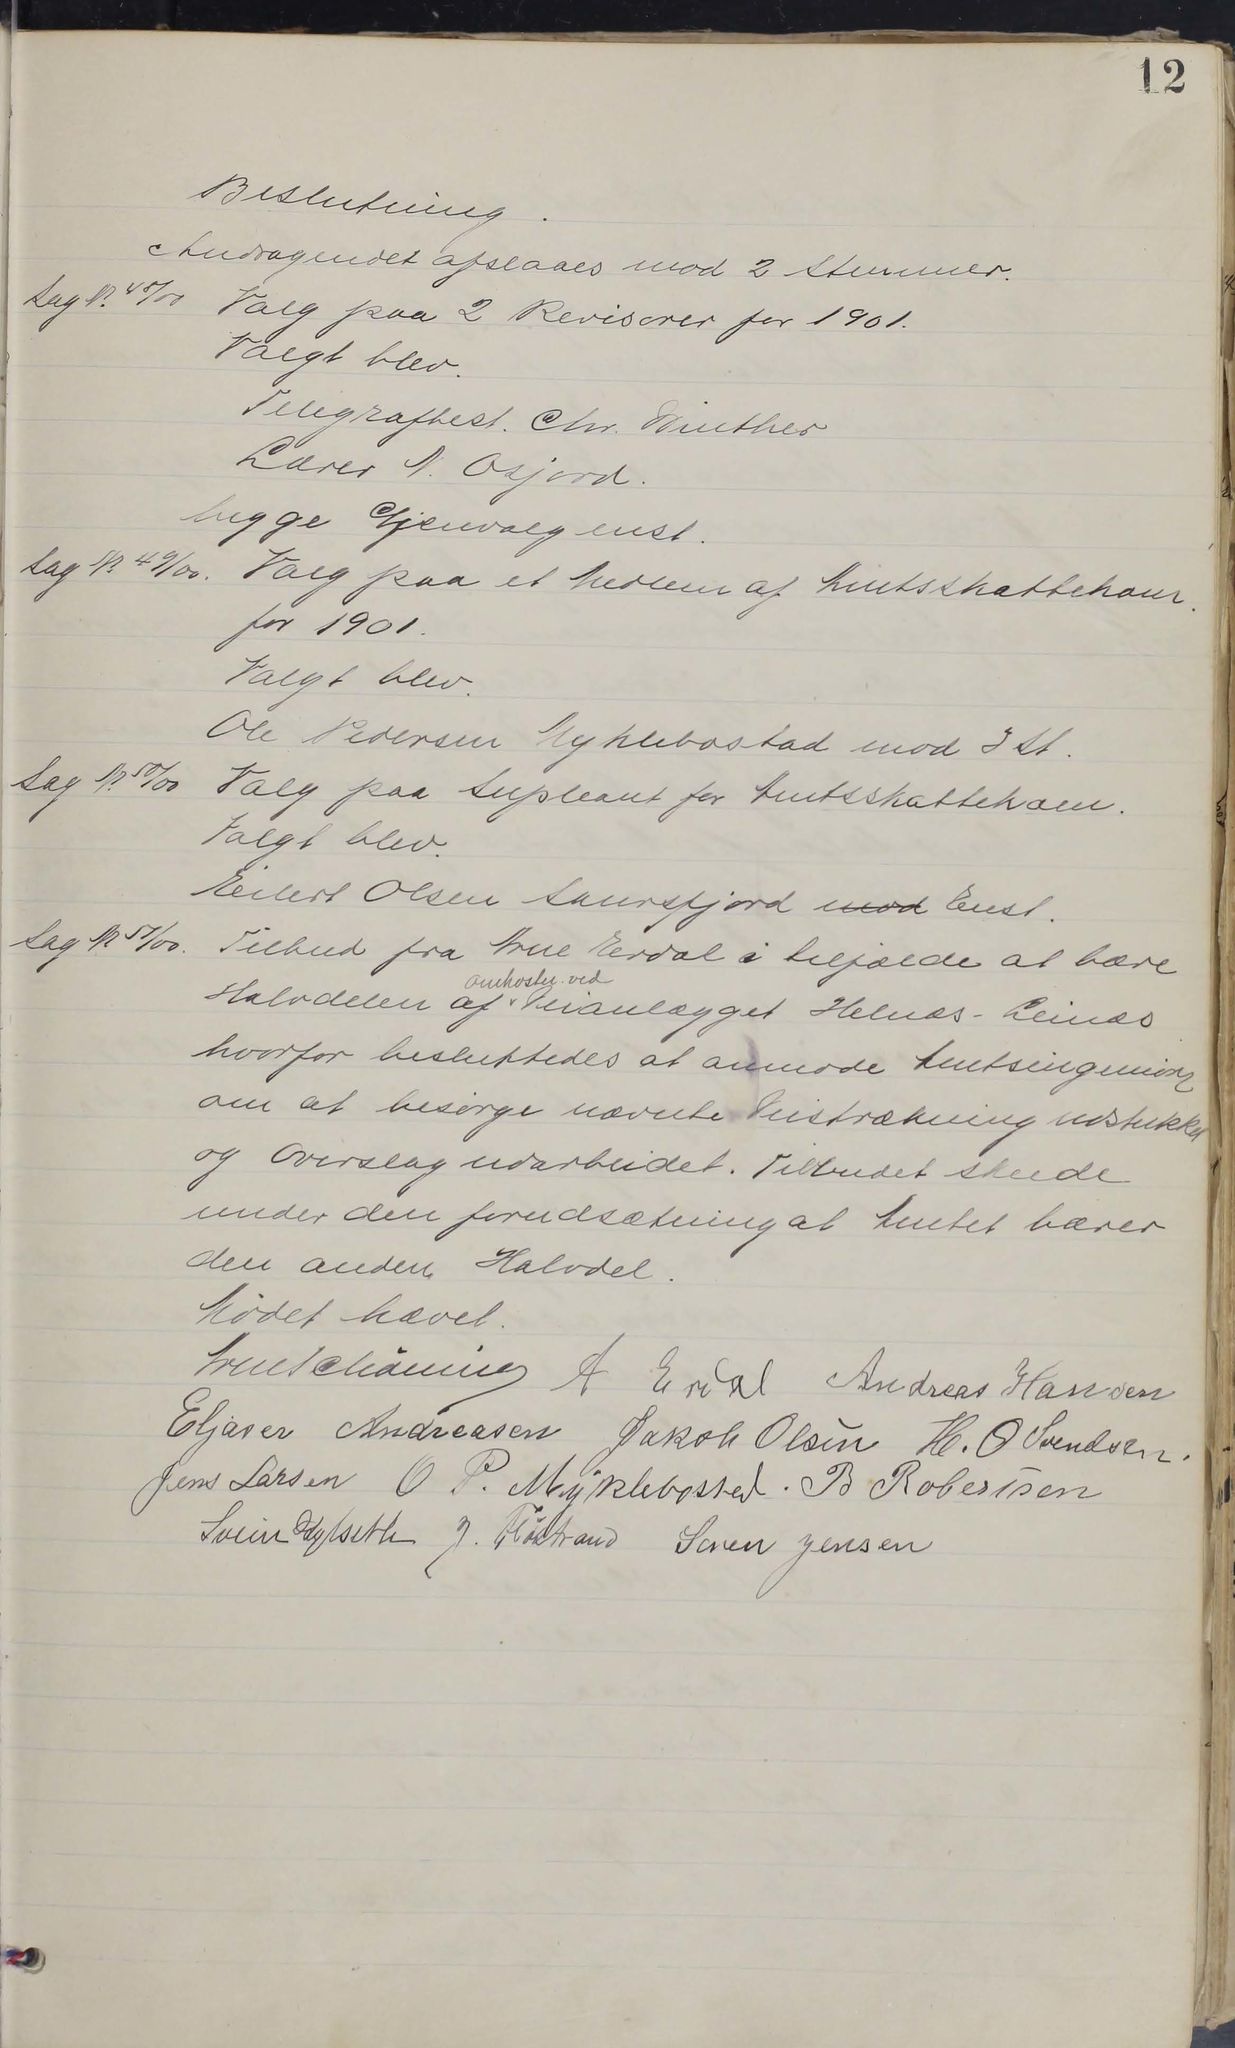 12
Beslutning.
Andragendet afslaaes mod 2 Stemmer.
Sag N. 48/00 Valg paa 2 Revisorer for 1901.
Valgt blev.
Telegrafbest. Chr. Winther
Lærer N. Oxjord.
begge Gjenvalg enst.
Sag N. 49/00. Valg paa et Medlem af Amtsskattekom.
for 1901.
Valgt blev.
Ole Pedersen Myklebostad mod 3 St.
Sag N. 50/00 Valg paa Supleant for Amtsskattekom.
Valgt blev.
Eilert Olsen Saursfjord mod Enst.
Sag N 51/00. Tilbud fra Arne Erdal i tilfælde at bære
omkostn. ved
Halvdelen af Veianlægget Helnæs - Leinæs
hvorfor besluttedes at anmode Amtsingeniør
om at besørge nævnte Veistrækning udstukket
og Overslag udarbeidet. Tilbudet skede
under den forudsætning at Amtet bærer
den anden Halvdel.
Mödet hævet.
Arnt Schöning A Erdal Andreas Hansen
Eljaser Andreasen Jakob Olsen H. O Svendsen.
Jens Larsen O P. Myklebostad. B Robertsen
Svein J. Flöstrand Søren Jensen